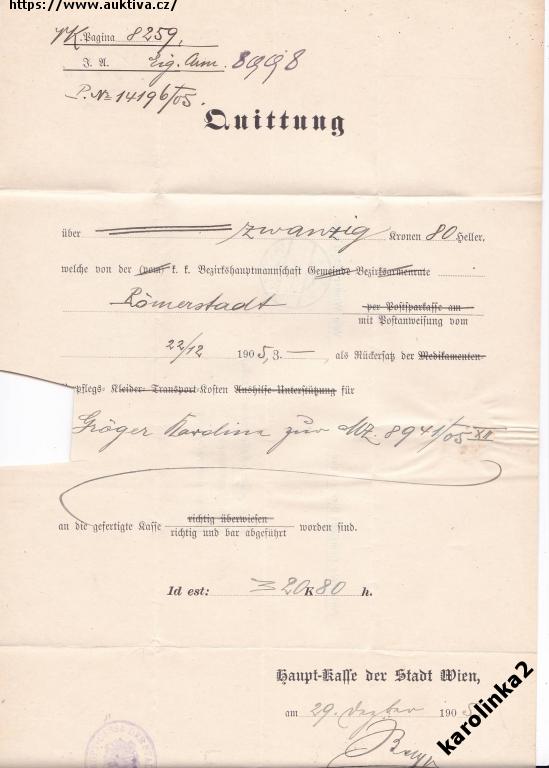 https://www.auktiva.cz/
K. Pagina 8259,
J. A. Eig. Arm. 8998
P. No 14196/05.
Quittung
über zwanzig Kronen 80 Heller,
welche von der (vom) k. k. Bezirkshauptmannschaft Gemeinde Bezirksarmenrate
Römerstadt per Postsparkasse am
mit Postanweisung vom
22/12 1905, 3. — als Rückersatz der Medikamenten-
pflegs- Kleider- Transport-Kosten Aushilfe-Unterstützung für
Gröger Karolina zur MZ. 8941/05 XII
an die gefertigte Kasse richtig überwiesen worden sind.
richtig und bar abgeführt
Id est: 20 K 80 h.
Haupt-Kasse der Stadt Wien,
am 29. Dezember 1905
karolinka2